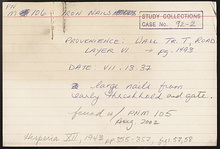 PN
M 106 IRON NAILS
STUDY COLLECTIONS
CASE No. 92-2
PROVENIENCE. WALL TR. T, ROAD
LAYER VI. → pg. 1493
DATE VII.13.37
5 large nails from
nearby threshhold and gate.
found w/ PNM 105
Aug. 2002
Hesperia XII, 1943 pp. 352-353, fig. 57, 58